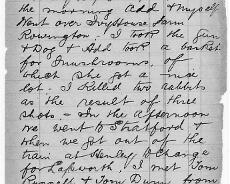 the morning Add & myself
Went over Ivy House Farm
Rowington. I took the Gun
& Dog & Add took a basket
for mushrooms of
which she got a nice
lot. I killed two rabbits
as the result of three
shots – In the afternoon
we went to Stratford &
when we got out of the
train at Henley to change
for Lapworth I met Tom
Russell & Tom Dunn from